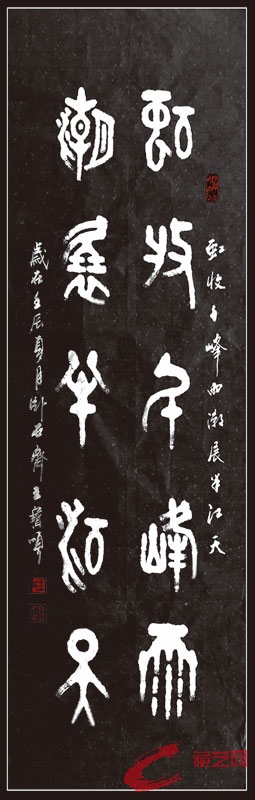 虹收千峰雨潮展半江天
虹收千峰雨
潮展半江天
歲在壬辰夏月卧石齋王寶鳴